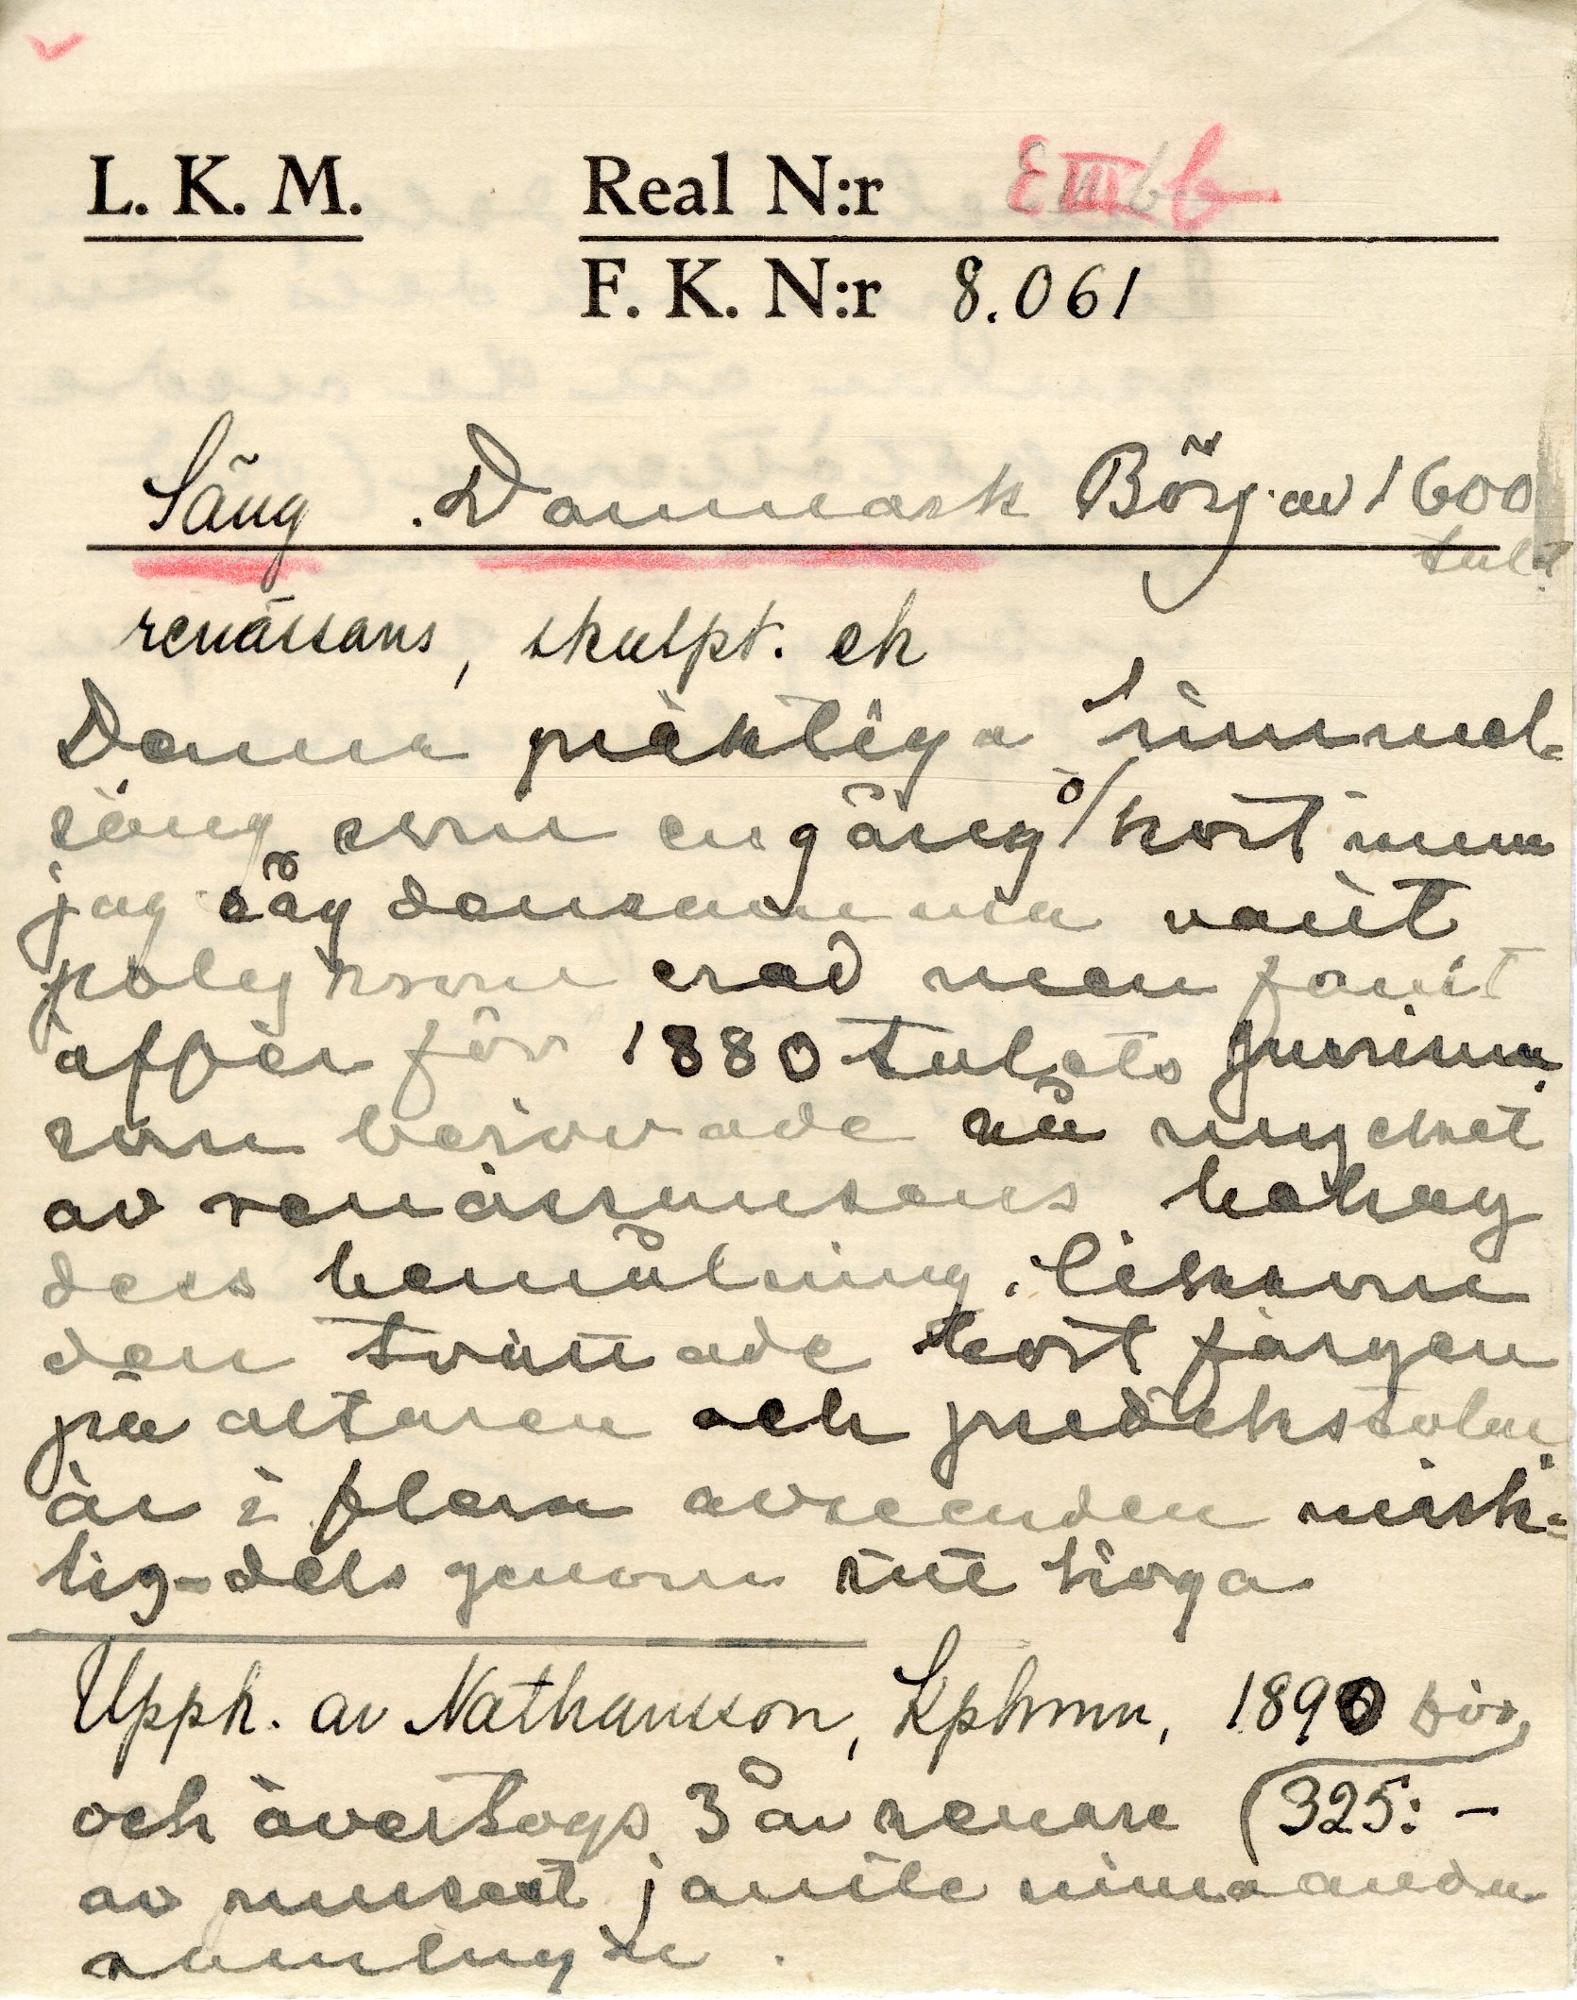 L. K. M. Real N:r E III b
F. K. N:r 8.061
Säng. Danmark Börj. av 1600
talet
renässans, skulpt. ek
Denna präktiga himmel-
säng som en gång o/ kort innan
jag såg densamma varit
polykromerad men fanit
affär för 1880-talets
som berövade så mycket
av renässansens behag
dess bemålning. Liksom
den tvättade bort färgen
på altaren och predikstolar
är i flera avseenden märk-
lig – dels genom sitt höga
Upph. av Nathansson, Kphmn, 1890 för
och övertogs 3 år senare (325:-
av museet jämte mina andra
samlingar.